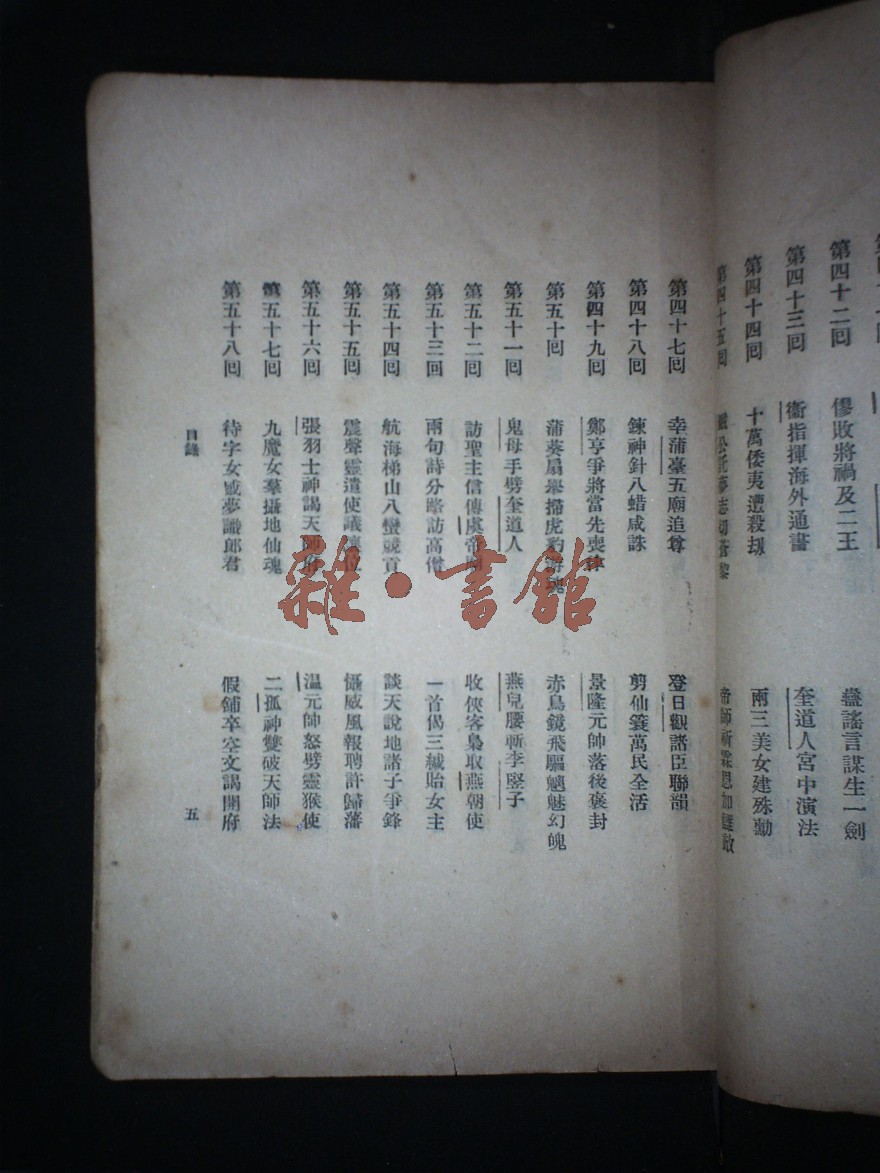 第四十二囘 慘敗將禍及二王 蠱謠言謀生一劍
第四十三囘 衞指揮海外通書 奎道人宮中演法
第四十四囘 十萬倭夷遭殺刼 兩三美女建殊勳
第四十五囘
第四十七囘 幸蒲臺五廟追尊 登日觀諸臣聯韻
第四十八囘 鍊神針八蜡咸誅 剪仙簑萬民全活
第四十九囘 鄭亨爭將當先喪律 景隆元帥落後褒封
第五十囘 蒲葵扇舉掃虎豹游魂 赤鳥鏡飛驅魑魅幻魄
第五十一囘 鬼母手劈奎道人 燕兒腰斬李竪子
第五十二囘 訪聖主信傳虞帝廟 收俠客梟取燕朝使
第五十三囘 兩句詩分路訪高僧 一首偈三緘貽女主
第五十四囘 航海梯山八蠻競貢 談天說地諸子爭鋒
第五十五囘 震聲靈遣使議讓位 懾威風報聘許歸藩
第五十六囘 張羽士神謁天師府 温元帥怒劈靈猴使
第五十七囘 九魔女羣攝地仙魂 二孤神雙破天師法
第五十八囘 待字女感夢識郎君 假鋪卒空文謁開府
目錄 五
雜·書館